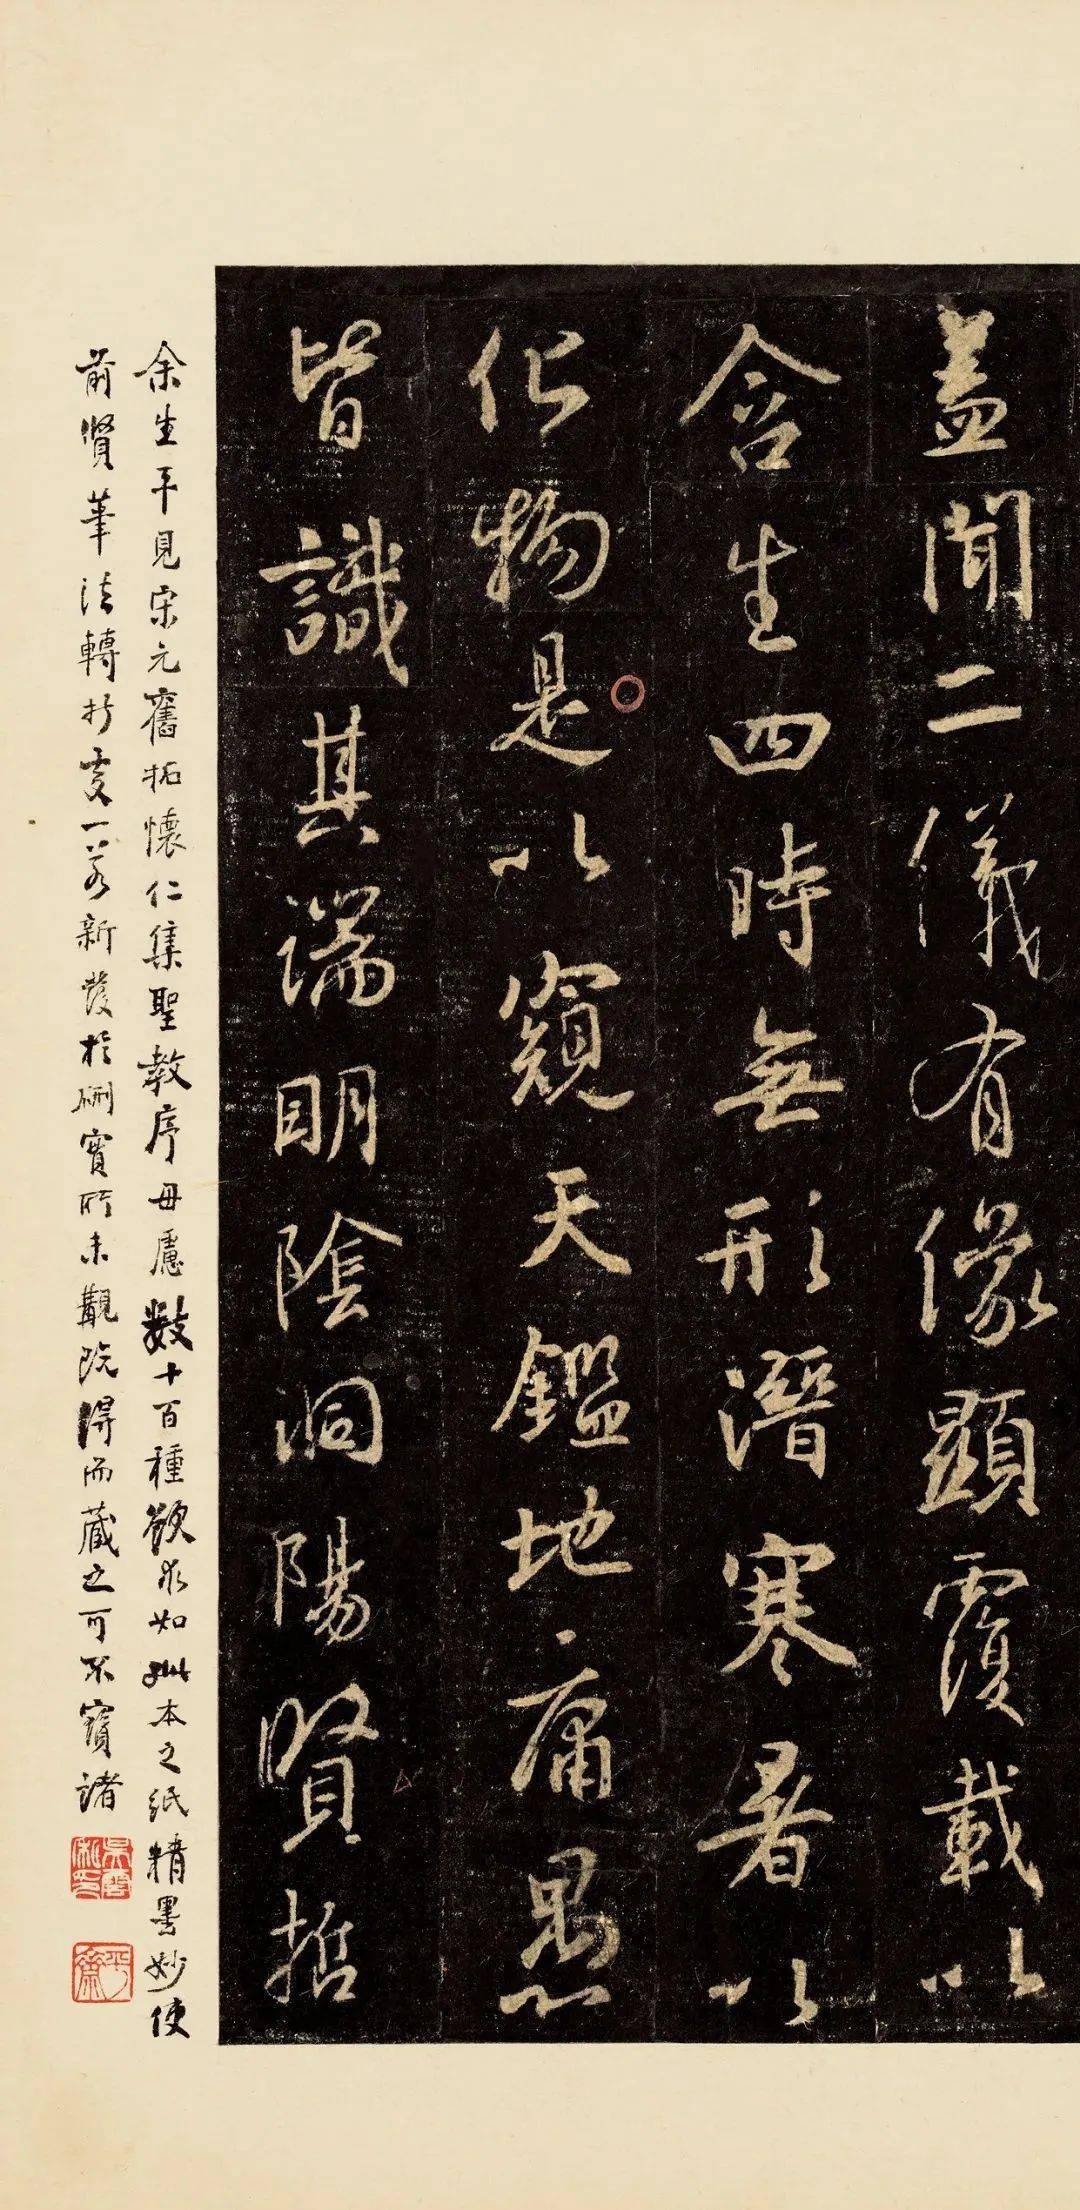 蓋聞二儀有像顯覆載以
含生四時無形潛寒暑以
化物是以窺天鑑地庸愚
皆識其端明陰洞陽賢哲
余生平見宋元舊拓懷仁集聖教序毋慮數十百種欲求如此本之紙精墨妙使
前賢筆法轉折處一若新發於硎實所未覯既得而藏之可不寶諸
吳雲私印
平齋